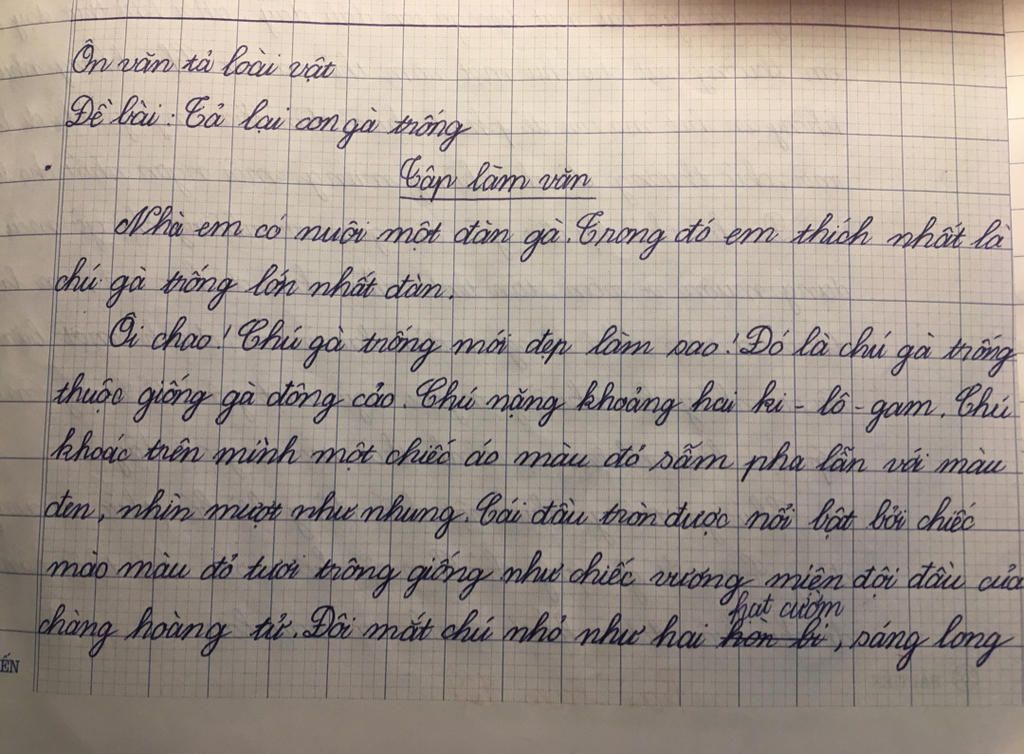 Ôn văn tả loài vật
Đề bài: Tả lại con gà trống
Tập làm văn
Nhà em có nuôi một đàn gà. Trong đó em thích nhất là
chú gà trống lớn nhất đàn.
Ôi chao! Chú gà trống mới đẹp làm sao! Đó là chú gà trống
thuộc giống gà đông cảo. Chú nặng khoảng hai ki-lô-gam. Chú
khoác trên mình một chiếc áo màu đỏ sẫm pha lẫn với màu
đen, nhìn mượt như nhung. Cái đầu tròn được nổi bật bởi chiếc
mào màu đỏ tươi trông giống như chiếc vương miện đội đầu của
hạt cườm
chàng hoàng tử. Đôi mắt chú nhỏ như hai hòn bi, sáng long
ẾN